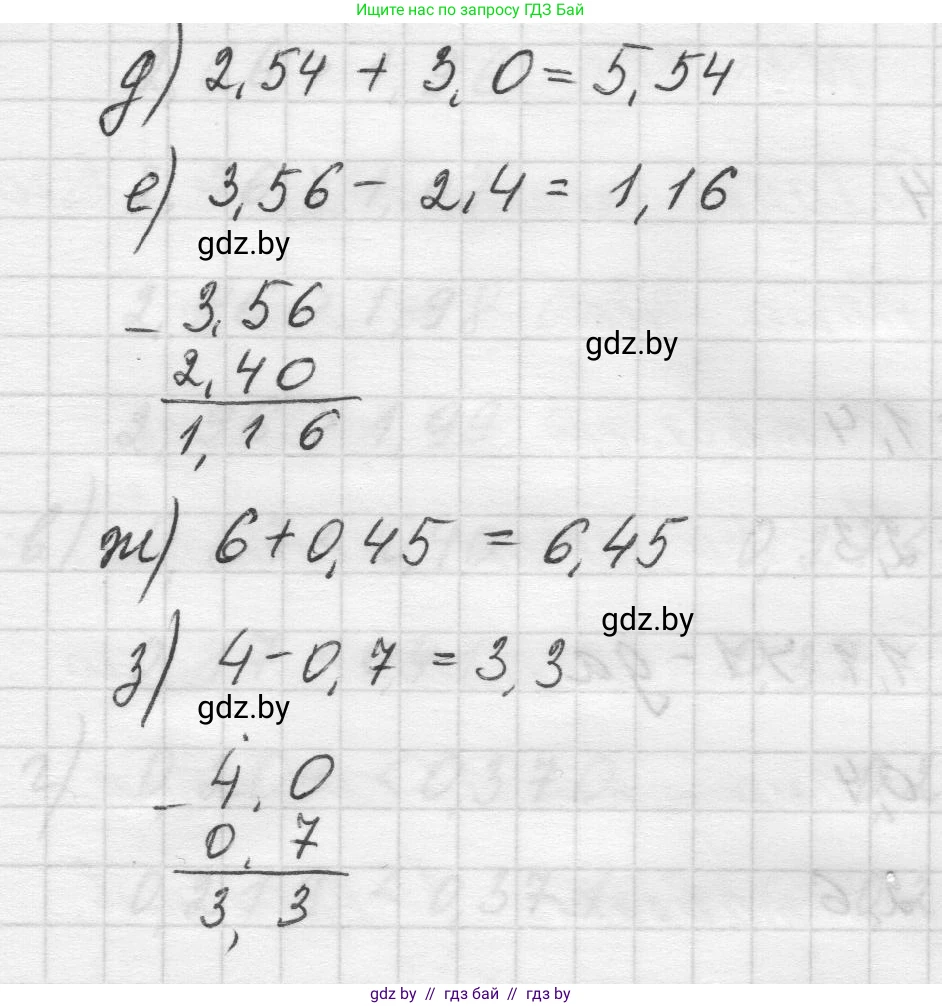 Ищите нас по запросу ГДЗ Бай
д) 2,54 + 3,0 = 5,54
е) 3,56 - 2,4 = 1,16
gdz.by
- 3,56
gdz.by
2,40
1,16
ж) 6 + 0,45 = 6,45
gdz.by
з) 4 - 0,7 = 3,3
gdz.by
- 4,0
0,7
3,3
gdz by // гдз бай // gdz by